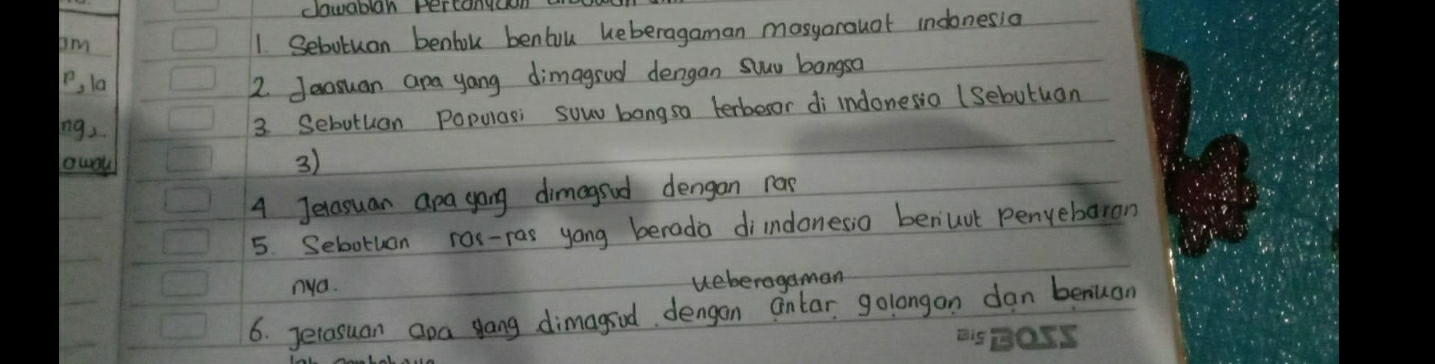 Jawablah Pertanyaan
1. Sebutuan bentuk bentuu ueberagaman masyarauat indonesia
am
P, la
2. Jeasuan apa yang dimagsud dengan Suuu bangsa
3. Sebutuan Populasi Suuu bangsa terbesar di indonesia (Sebutuan
ng2.
3)
away
4 Jerasuan apa yang dimagsud dengan ras
5. Sebutuan ras-ras yang berada di indonesia beriuut Penyebaran
nya.
ueberagaman
6. Jerasuan apa yang dimagsud dengan antar golongan dan beriuan
BIG BOSS